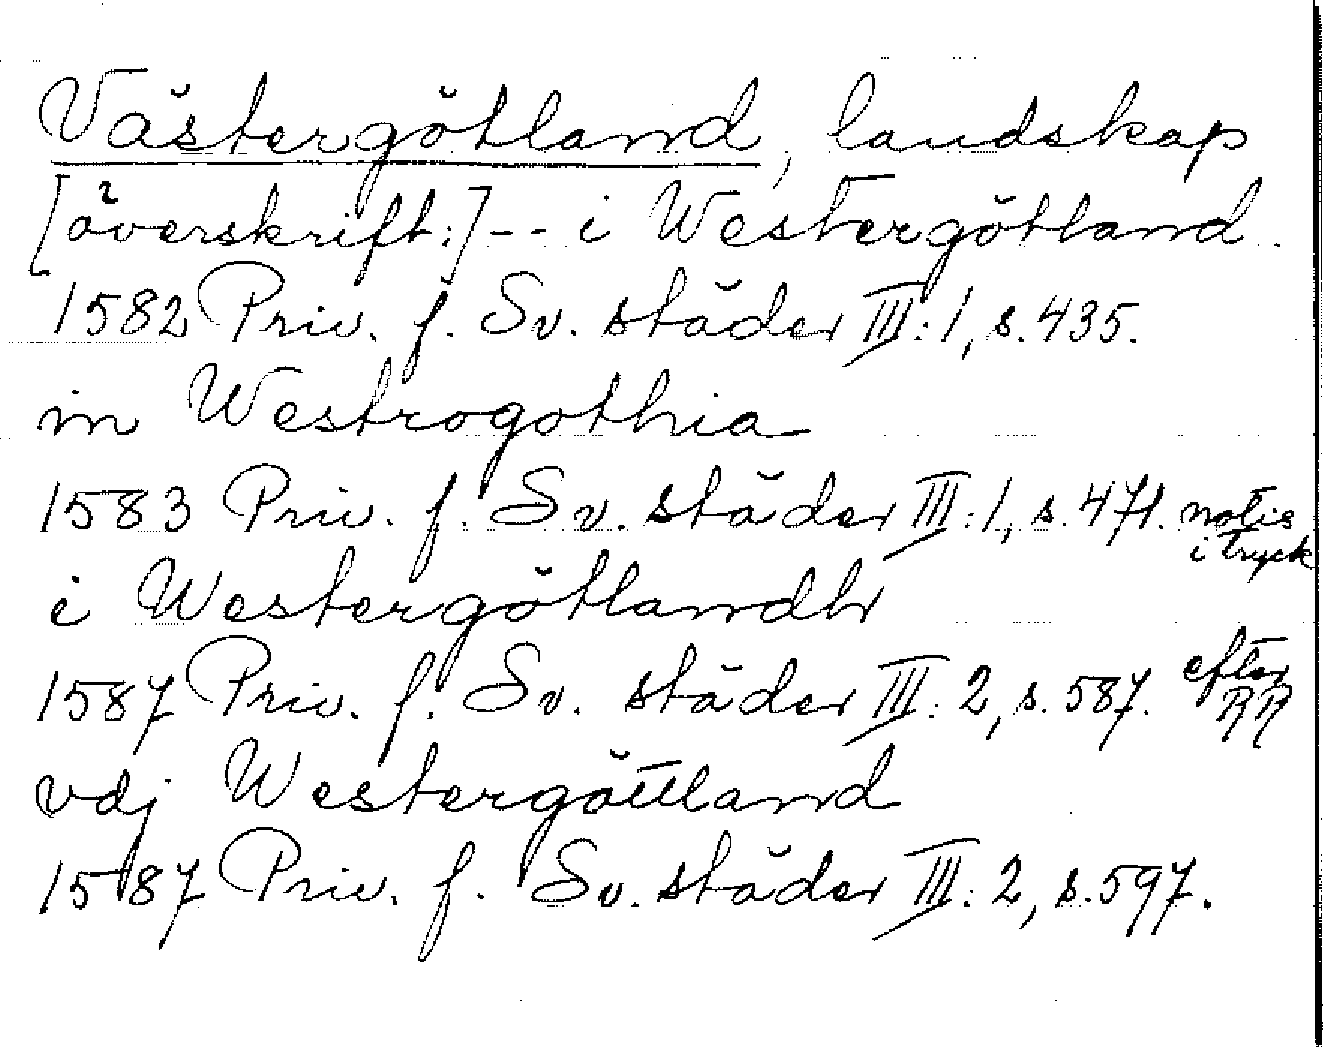 Västergötland, landskap
[överskrift:] -- i Westergötland.
1582 Priv. f. Sv. städer III:1, s. 435.
in Westrogothia
1583 Priv. f. Sv. städer III:1, s. 471. notis i tryck
i Westergötlandh
1587 Priv. f. Sv. städer III:2, s. 587. efter RR
vdj Westergöttland
1587 Priv. f. Sv. städer III:2, s. 597.